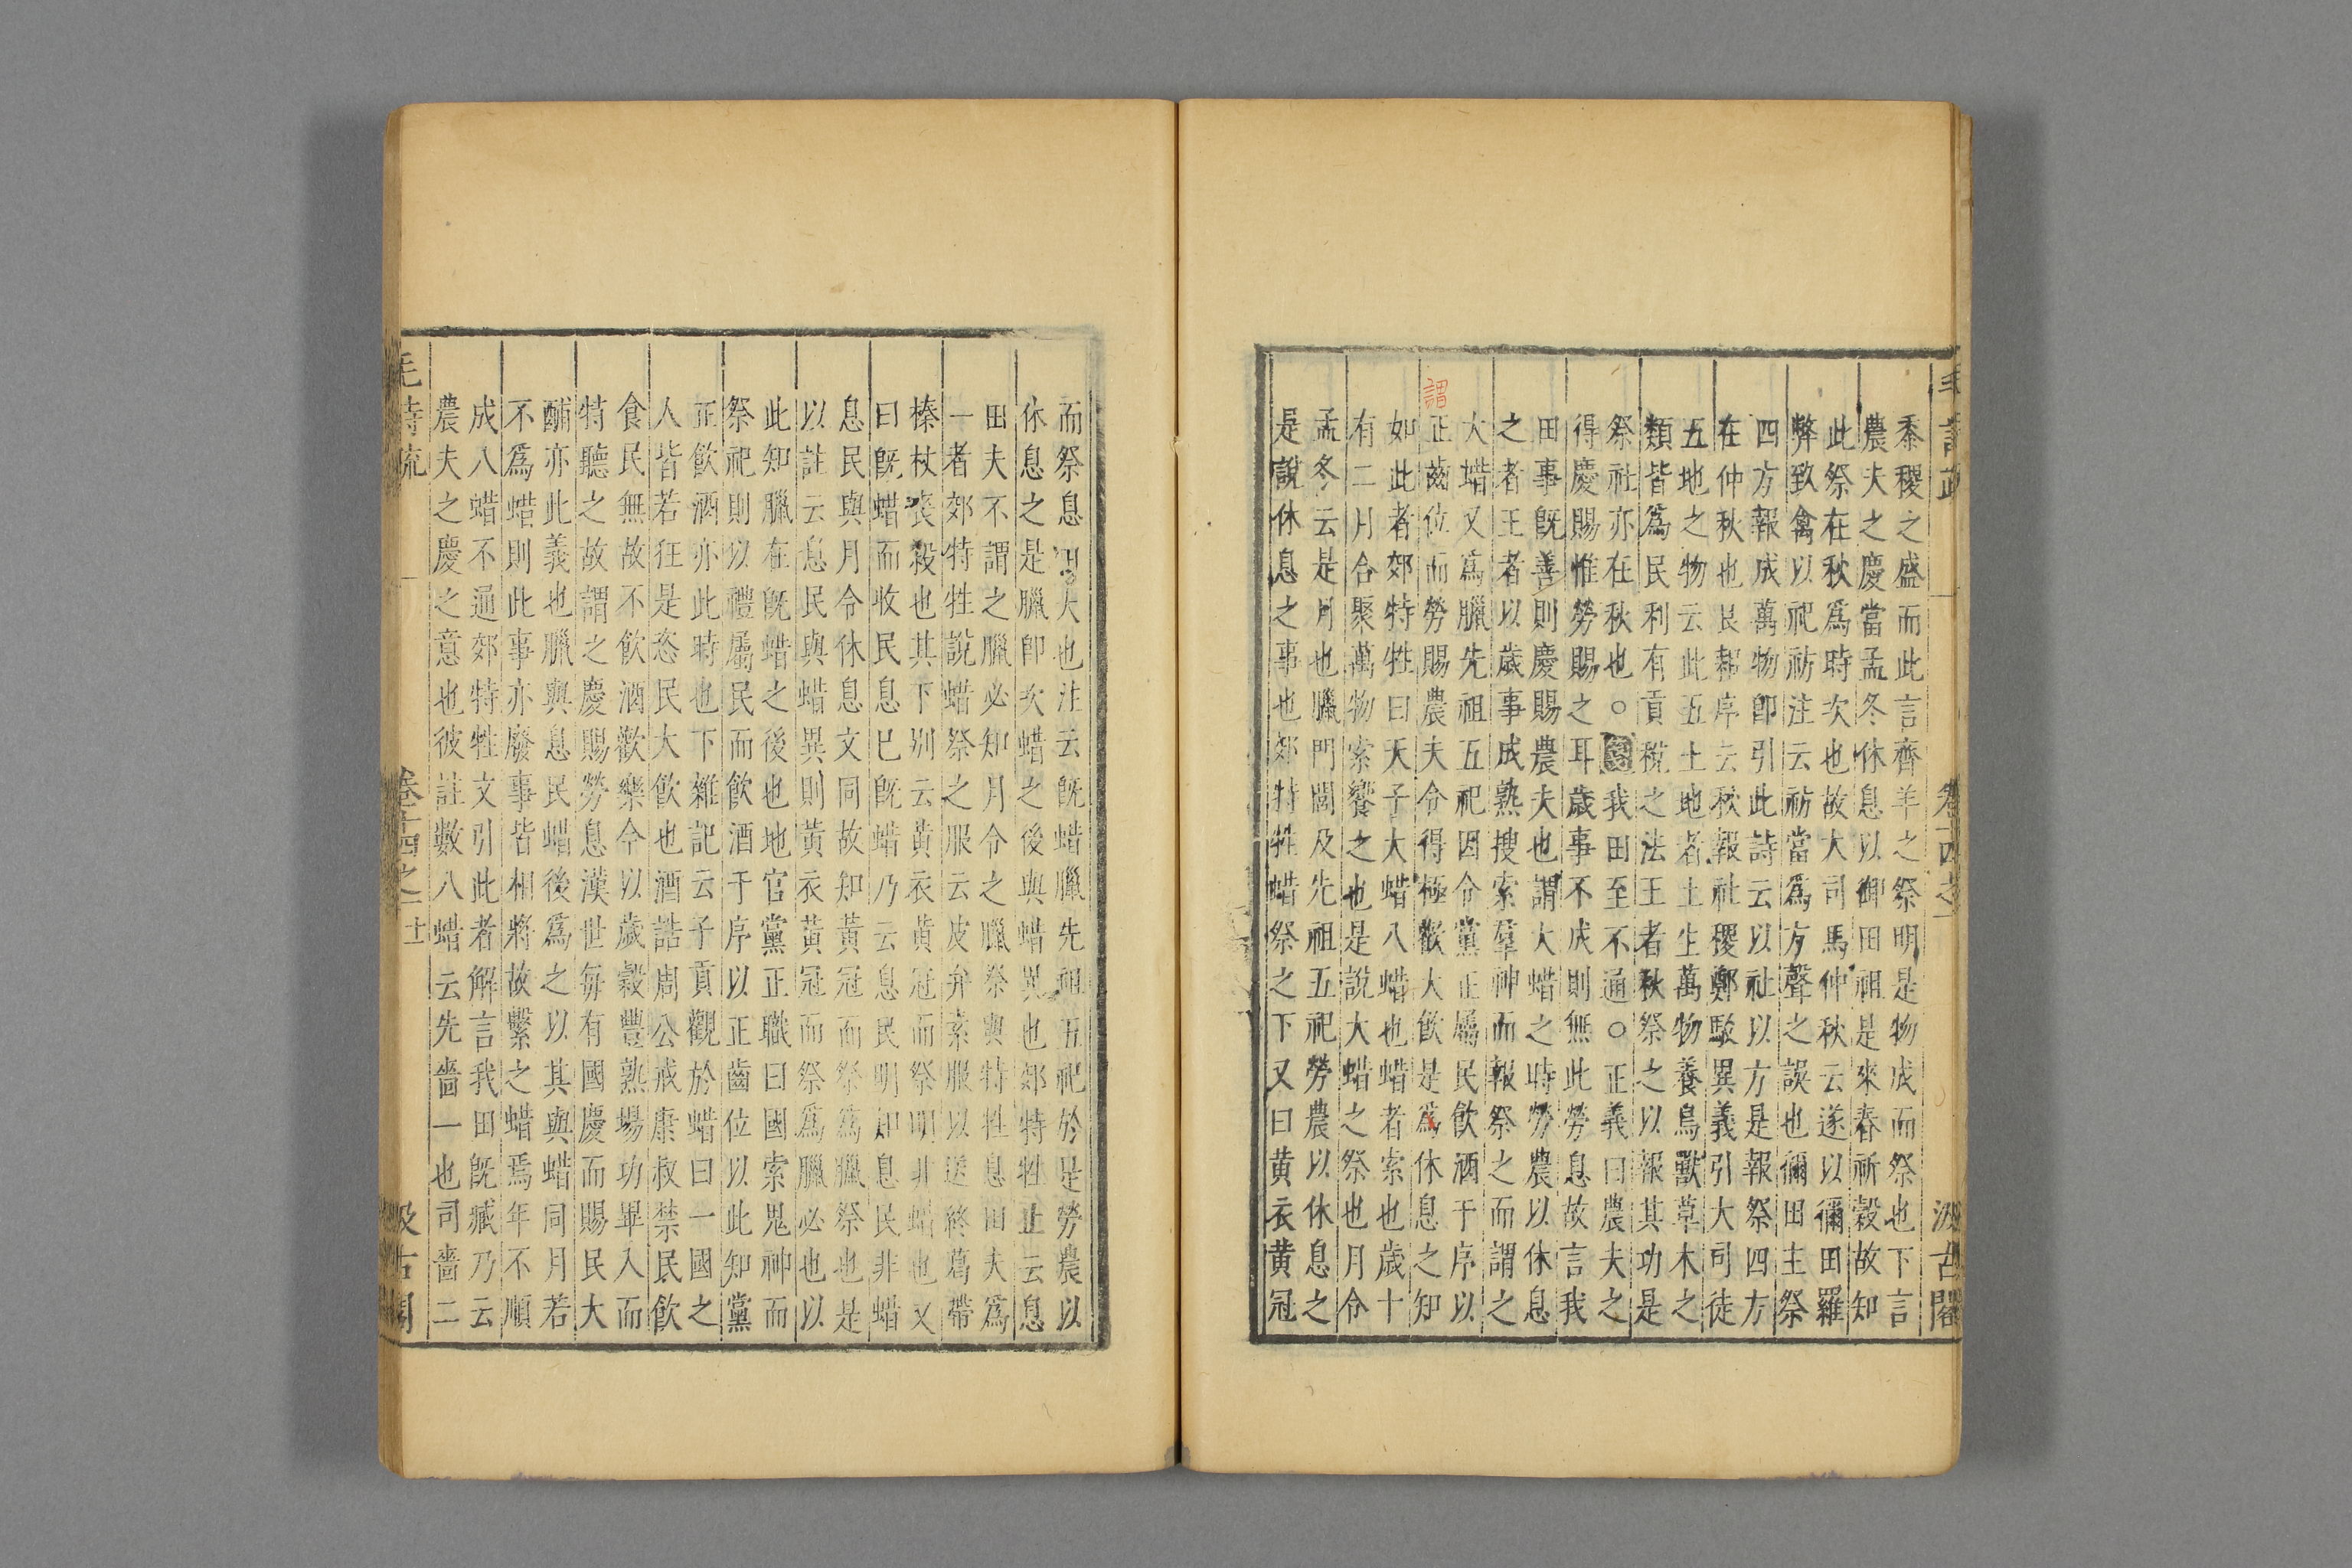 黍稷之盛而此言齊羊之祭明是物成而祭也下言
農夫之慶當孟冬休息以御田祖是來春祈穀故知
此祭在秋秋爲時次也故大司馬仲秋云遂以彌田羅
弊致禽以祀祊注云祊當爲方聲之誤也彌田主祭
四方報成萬物卽引此詩云以社以方是報祭四方
在仲秋也良耜序云秋報社稷鄭駮異義引大司徒
五地之物云此五土地者土生萬物養鳥獸草木之
類皆爲民利有貢稅之法王者秋祭之以報其功是
祭社亦在秋也○箋我田至不通○正義曰農夫之
得慶賜惟勞賜之耳歳事不成則無此勞息故言我
田事旣善則慶賜農夫也謂大蜡之時勞農以休息
之者王者以歲事成熟搜索羣神而報祭之而謂之
大蜡又爲臘先祖五祀因令黨正屬民飲酒于序以
謂
正齒位而勞賜農夫令得極歡大飲是爲休息之知
如此者郊特牲曰天子大蜡八蜡也蜡者索也歲十
有二月合聚萬物索饗之也是說大蜡之祭也月令
孟冬云是月也臘門閭及先祖五祀勞農以休息之
是說休息之事也郊特牲蜡祭之下又曰黄衣黄冠
毛詩疏
卷十四之一
汲古閣
而祭息田夫也注云旣蜡臘先祖五祀於是勞農以
休息之是臘卽次蜡之後與蜡異也郊特牲止云息
田夫不謂之臘必知月令之臘祭與特牲息田夫爲
一者郊特牲說蜡祭之服云皮弁素服以送終葛帶
榛杖喪殺也其下別云黃衣黃冠而祭明非蜡也又
曰旣蜡而收民息巳旣蜡乃云息民明知息民非蜡
息民與月令休息文同故知黃冠而祭爲臘祭也是
以註云息民與蜡異則黃衣黃冠而祭爲臘必也以
此知臘在旣蜡之後也地官黨正職曰國索鬼神而
祭祀則以禮屬民而飲酒于序以正齒位以此知黨
正飲酒亦此時也下雜記云子貢觀於蜡曰一國之
人皆若狂是恣民大飲也酒誥周公戒康叔禁民飲
食民無故不飲酒歡樂令以歲穀豐熟場功畢入而
特聽之故謂之慶賜勞息漢世毎有國慶而賜民大
酺亦此義也臘與息民蜡後爲之以其與蜡同月若
不爲蜡則此事亦廢事皆相將故繫之蜡焉年不順
成八蜡不通郊特牲文引此者解言我田旣臧乃云
農夫之慶之意也彼註數八蜡云先嗇一也司嗇二
毛詩疏
卷十四之一
十一
汲古閣